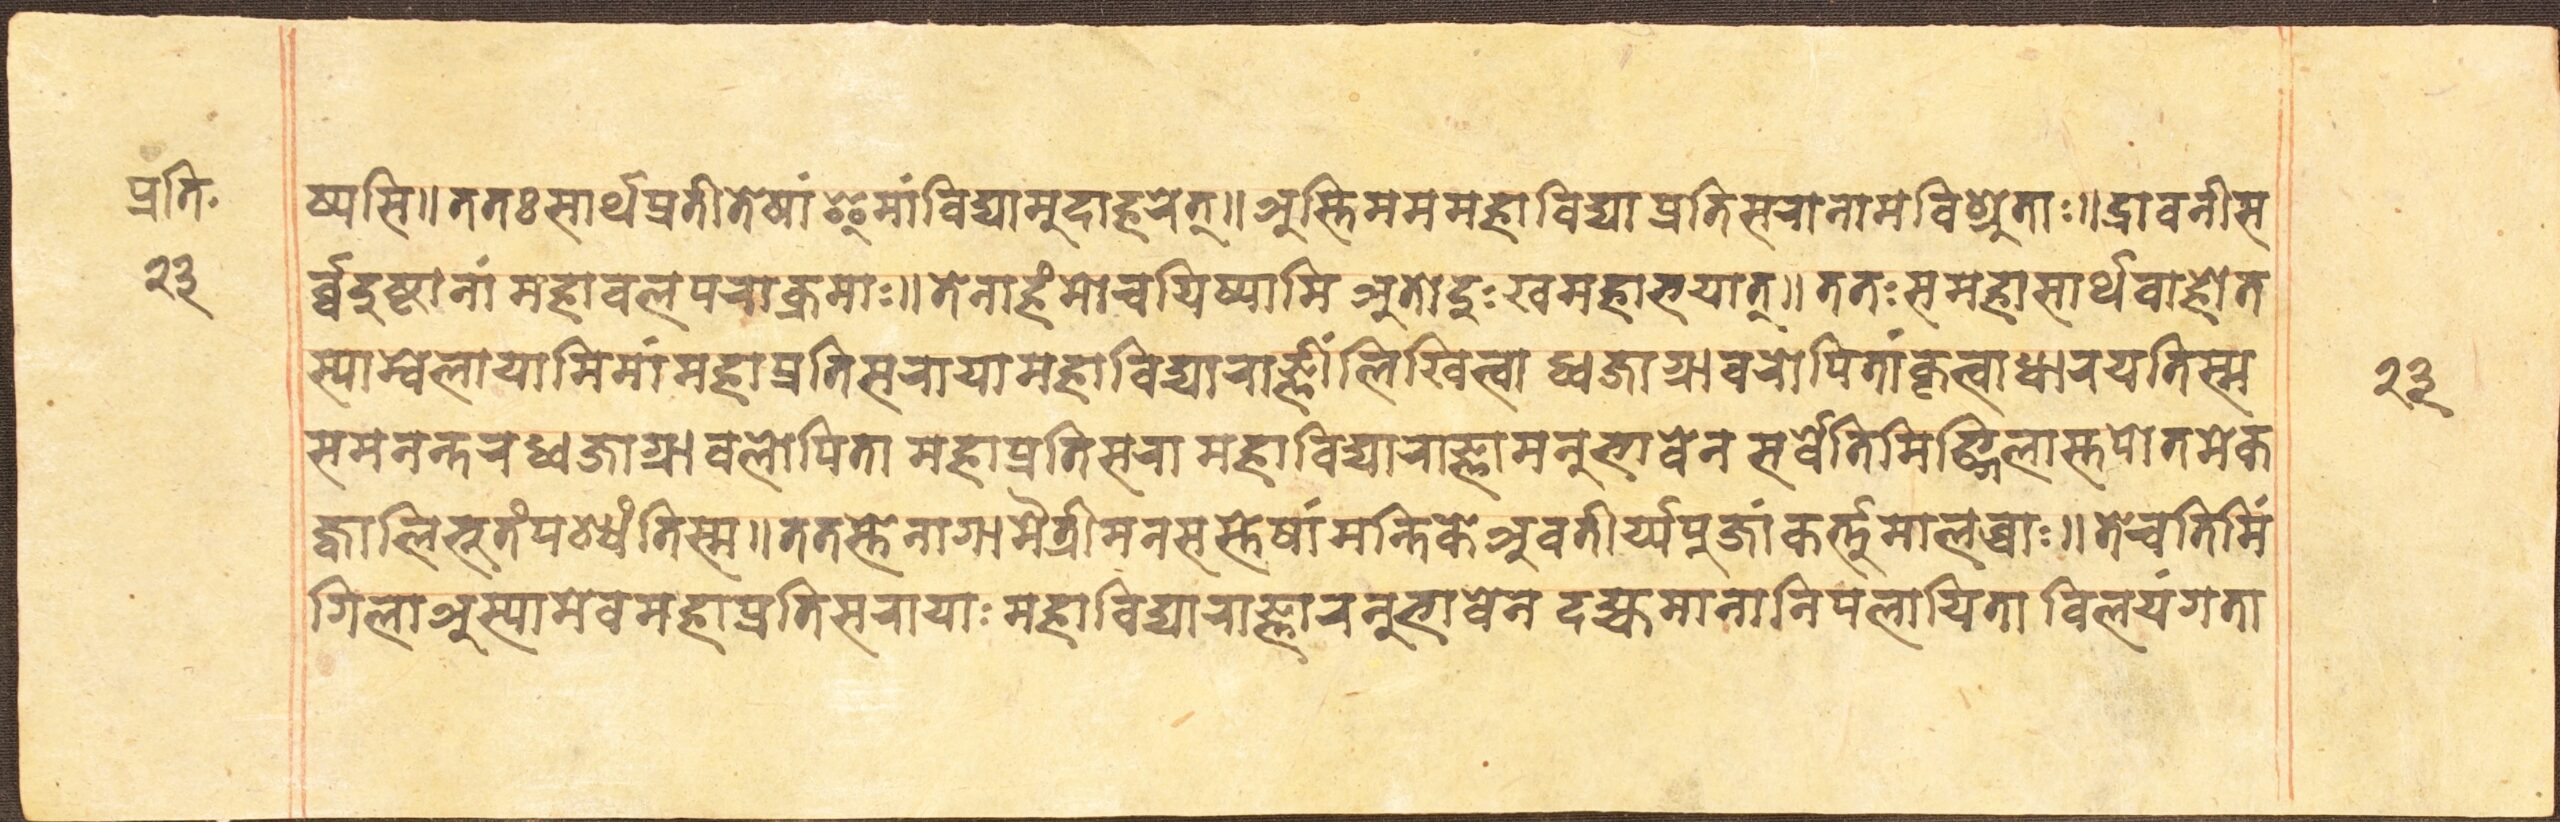 प्रतिः
२३
ष्यसि॥ततः सार्थप्रतीतेषां इमां विद्यामुदाहरेत्॥अस्ति मम महाविद्या प्रतिसरा नाम विश्रुताः॥द्रावनी स
र्व्वदुष्टानां महावलपराक्रमाः॥तेनाहं मोचयिष्यामि अतो दुःखमहाभयात्॥ततः स महासार्थवाहो त
स्याम्वेलायामिमां महाप्रतिसराया महाविद्याराज्ञीं लिखित्वा ध्वजाग्रावरोपितां कृत्वा धारयति स्म
समनन्तरध्वजाग्रावलोपिता महाप्रतिसरा महाविद्याराज्ञामनुभावेन सर्वे तिमिङ्गिलास्त पोतमेक
ज्वालिभूतं पश्यंति स्म॥ततस्ते नागा मैत्रीमनसस्तेषां मन्तिके अवतीर्य्य पूजां कर्त्तुमालब्धाः॥ते च तिमिं
गिला अस्यामेव महाप्रतिसरायाः महाविद्याराज्ञारनुभावेन दह्यमानानि पलायिता विलयं गता
२३